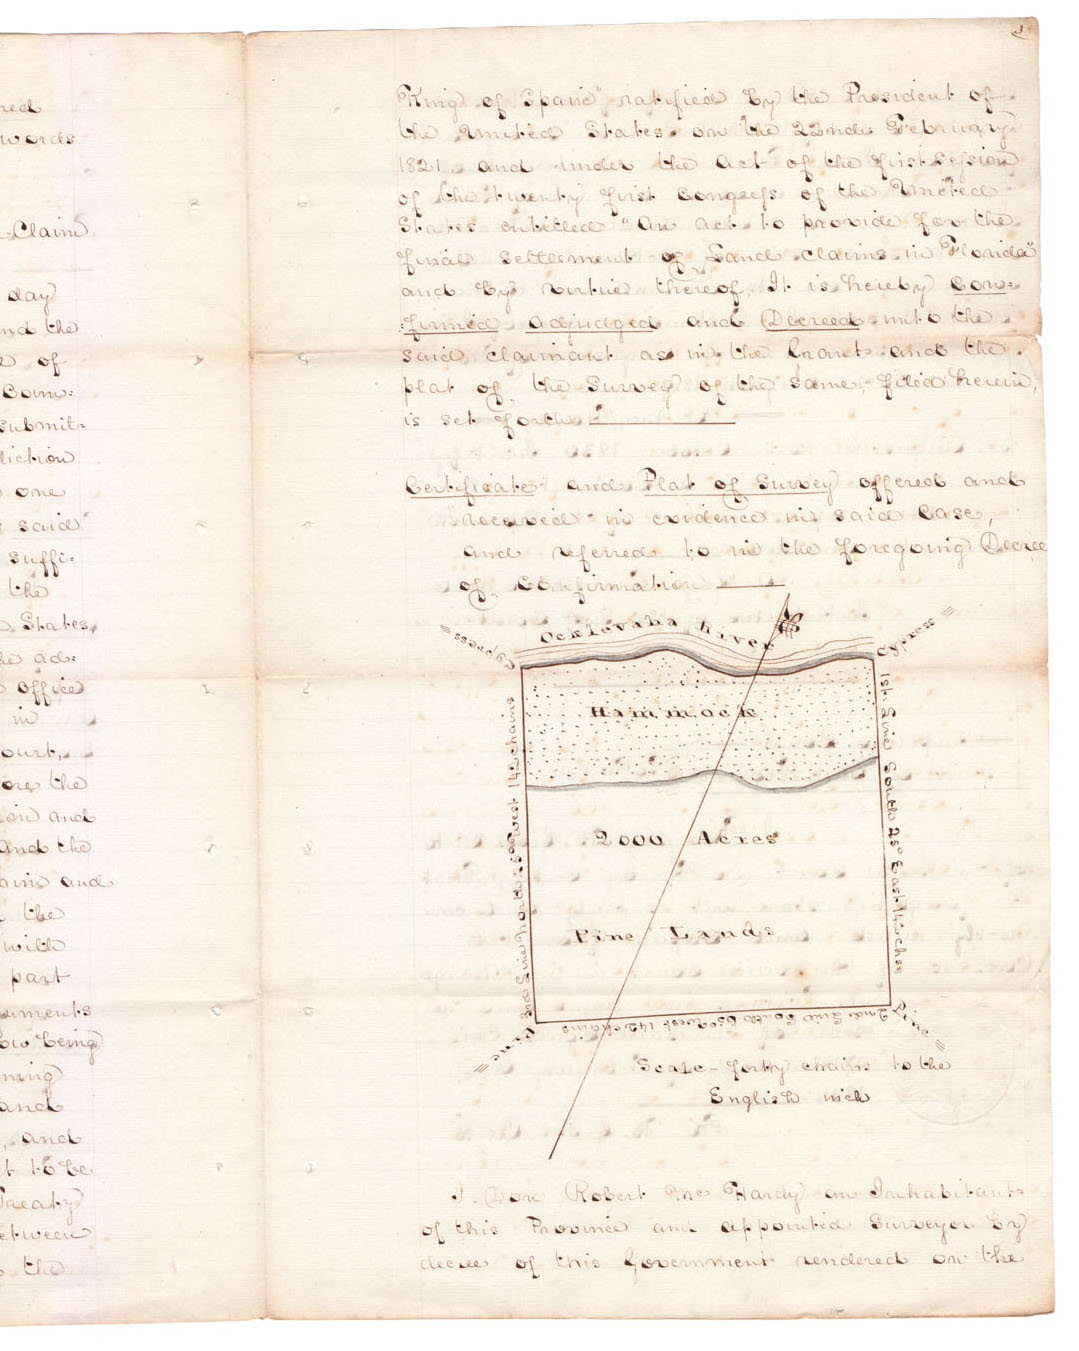 red
words
Claim
day
nd the
of
Com:
submit:
diction
one
said
suffi:
the
States,
he ad:
office
in
ourt,
ore the
ion and
and the
ains and
the
with
part
uments
ow being
ning
and
, and
t to be
Treaty
etween
the
3
King of Spain", ratified by the President of
the United States on the 22nd February
1821, and under the act of the first session
of the twenty first Congress of the United
States entitled "An act to provide for the
final settlement of Land claims in Florida"
and by virtue thereof, It is hereby Con=
:firmed adjudged and Decreed unto the
said claimant as in the Grant and the
plat of the Survey of the same, filed herein,
is set forth
Certificate and Plat of Survey offered and
received in evidence in said Case,
and referred to in the foregoing Decree
of Confirmation
Ocklevaha River
Cypress
Cypress
Hammock
2000 Acres
Pine Lands
1st Line South 25° East 142 chs
2nd Line South 65° West 142 chains
3rd Line North 25° West 142 chains
Pine
Pine
Scale - forty chains to the
English inch
I Don Robert McHardy an Inhabitant
of this Province and appointed Surveyor by
decree of this Government rendered on the